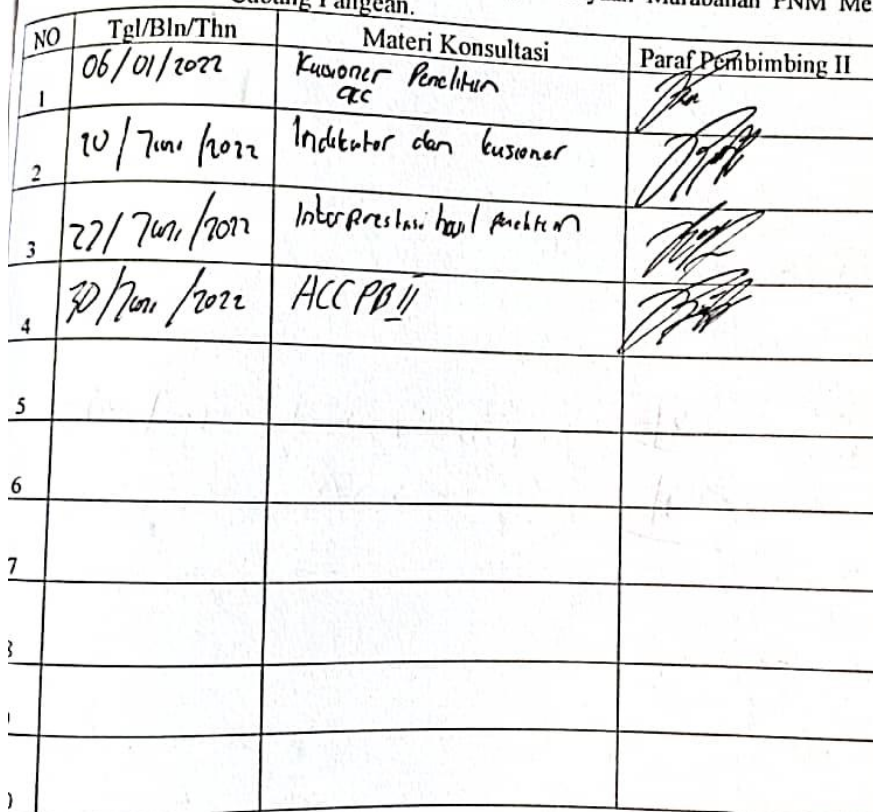 Murabahah PNM Me
Cabang Pangean.
NO Tgl/Bln/Thn Materi Konsultasi Paraf Pembimbing II
1 06/01/2022 Kusioner Penelitian
acc
2 20/Juni/2022 Indikator dan kusioner
3 27/Juni/2022 Interprestasi hasil penelitian
4 30/Juni/2022 ACC PB II
5
6
7